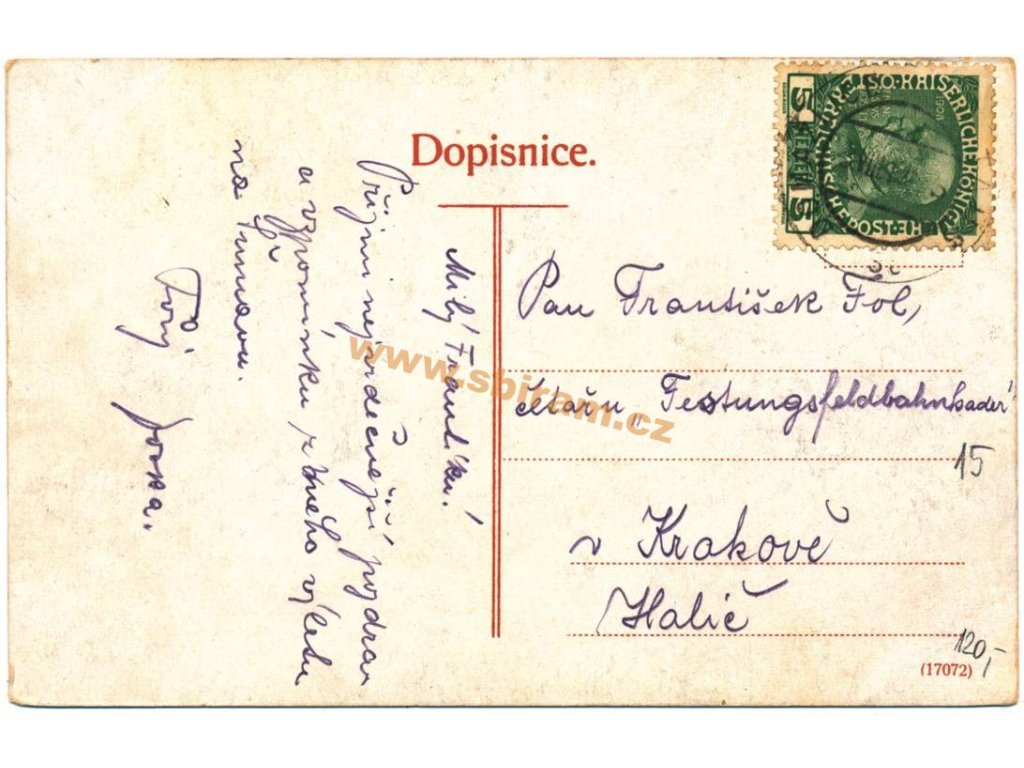 Dopisnice.
Milý Frantíku!
Přijmi nejsrdečnější pozdrav
a vzpomínku z mého výletu
na Šumavu.
Tvůj
Pan František Fol,
"Festungsfeldbahnkader"
v Krakově
Halič
15
120,-
(17072)
5 HELLER 5
KAISERLICHE KÖNIGLICHE
POST
1908
www.sbiram.cz